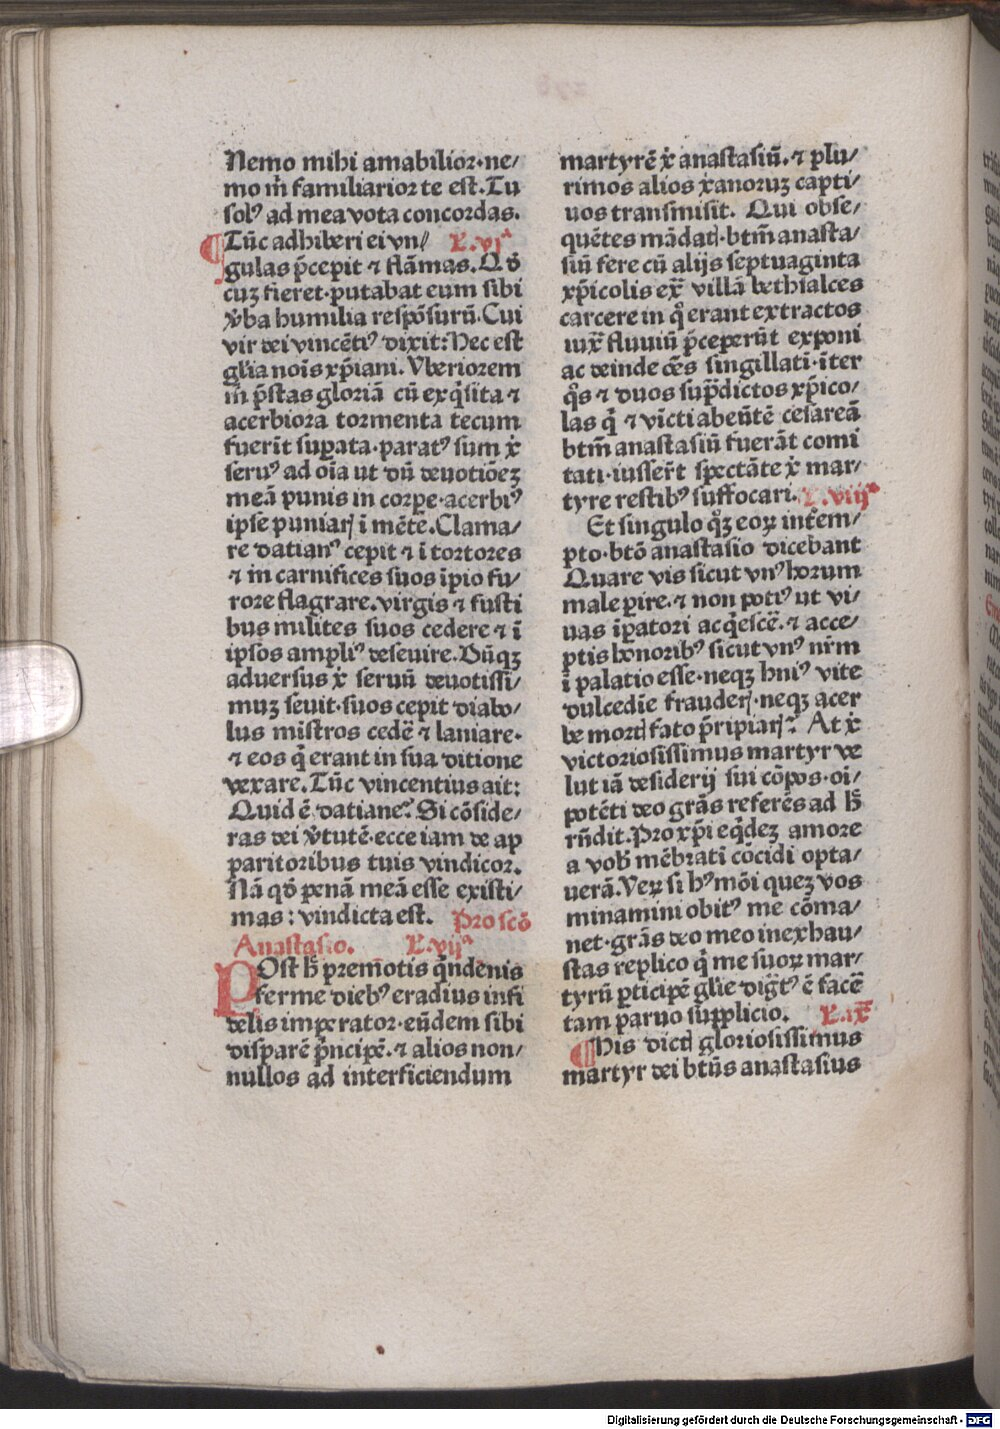 Nemo mihi amabilior·ne/
mo m̃ familiarior te est.Tu
solꝰ ad mea vota concordas.
Tũc adhiberi ei vn/ L.vjᵃ
gulas p̃cepit ⁊ flãmas.Qd̕
cuꝫ fieret·putabat eum sibi
v̕ba humilia respõsurũ.Cui
vir dei vincẽtiꝰ dixit:Nec est
gl̃ia nois̃ xp̃iani.Vberiorem
m̃ p̃stas gloriã cũ exq̃sita ⁊
acerbiora tormenta tecum
fuerĩt suꝑata·paratꝰ sum x̃
seruꝰ ad oĩa ut dũ deuotiõeꝫ
meã punis in corꝑe·acerbiꝰ
ipse puniar̃ ĩ mẽte.Clama/
re datianꝰ cepit ⁊ ĩ tortores
⁊ in carnifices suos ĩpio fu/
rore flagrare.virgis ⁊ fusti
bus milites suos cedere ⁊ ĩ
ipsos ampliꝰ deseuire.Dũqꝫ
adversus x̃ seruũ deuotissi/
muꝫ seuit·suos cepit diabo/
lus mĩstros cedẽ ⁊ laniare·
⁊ eos q̃ erant in sua ditione
vexare.Tũc vincentius ait:
Quid ẽ datiane? Si cõside/
ras dei v̕tutẽ·ecce iam de ap
paritoribus tuis vindicor.
Nã qd̕ penã meã esse existi/
mas:vindicta est. Pro scõ
Anastasio. L.vijᵃ
POst h̕ premotis q̃ndenis
ferme diebꝰ eradius infi
delis imperator·eũdem sibi
disparẽ p̃ncipẽ·⁊ alios non/
nullos ad interficiendum
martyrẽ x̃ anastasiũ.⁊ plu/
rimos alios x̃anoruꝫ capti/
uos transmisit. Qui obse/
quẽtes mãdatꝭ·btm̃ anasta/
siũ fere cũ alijs septuaginta
xp̃icolis ex̃ villã bethsalces
carcere in q̃ erant extractos
iux̃ fluuiũ p̃ceperũt exponi
ac deinde oẽs singillatĩ·ĩter
q̃s ⁊ duos sup̃dictos xp̃ico/
las q̃ ⁊ vĩcti abeũtẽ cesareã
btm̃ anastasiũ fuerãt comi
tati·iusser̃t spectãte x̃ mar/
tyre restibꝰ suffocari. L.viijᵃ
Et singulo qꝫ eoꝝ intẽm/
pto·btõ anastasio dicebant
Quare vis sicut vnꝰ horum
male ꝑire·⁊ non potiꝰ ut vi/
uas ĩꝑatori acq̃escẽ·⁊ acce/
ptis honoribꝰ sicut vnꝰ nr̃m
ĩ palatio esse·neqꝫ hniꝰ vite
dulcedĩe frauder̃·neqꝫ acer
be mortꝭ fato p̃ripiar̃? At x̃
victoriosissimus martyr ve
lut iã desiderij sui cõpos·oĩ/
potẽti deo grãs referẽs ad h̕
rñdit.Pro xp̃i eq̃deꝫ amore
a vob̕ mẽbratĩ cõcidi opta/
uerã.Veꝝ si hꝰmõi queꝫ vos
minamini obitꝰ me cõma/
net·grãs deo meo inexhau/
stas replico q̃ me suoꝝ mar/
tyrũ ꝑticipẽ gl̃ie dig̃tꝰ ẽ facẽ
tam paruo supplicio. L.ixᵃ
His dictꝭ gloriosissimus
martyr dei btũs anastasius
Digitalisierung gefördert durch die Deutsche Forschungsgemeinschaft - DFG